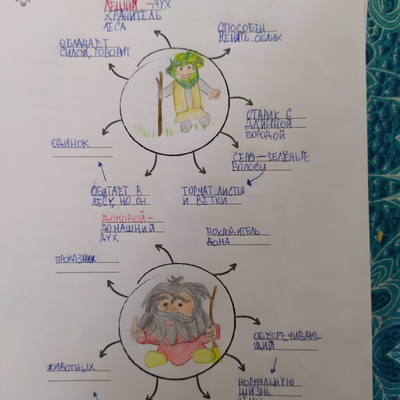 ЛЕШИЙ – ДУХ
ХРАНИТЕЛЬ
ЛЕСА
СПОСОБЕН
МЕНЯТЬ ОБЛИК
ОБЛАДАЕТ
СИЛОЙ, ГОВОРИТ
СТАРИК С
ДЛИННОЙ
БОРОДОЙ
ОДИНОК
СЕРО-ЗЕЛЁНЫЕ
ВОЛОСЫ
ОБИТАЕТ В
ЛЕСУ, НО ОН
ТОРЧАТ ЛИСТЬЯ
И ВЕТКИ
ДОМОВОЙ-
ДОМАШНИЙ
ДУХ
ПОКРОВИТЕЛЬ
ДОМА
ПРОКАЗНИК
ОБЕСПЕЧИВАЮ-
ЩИЙ
ЖИВОТНЫХ
НОРМАЛЬНУЮ
ЖИЗНЬ